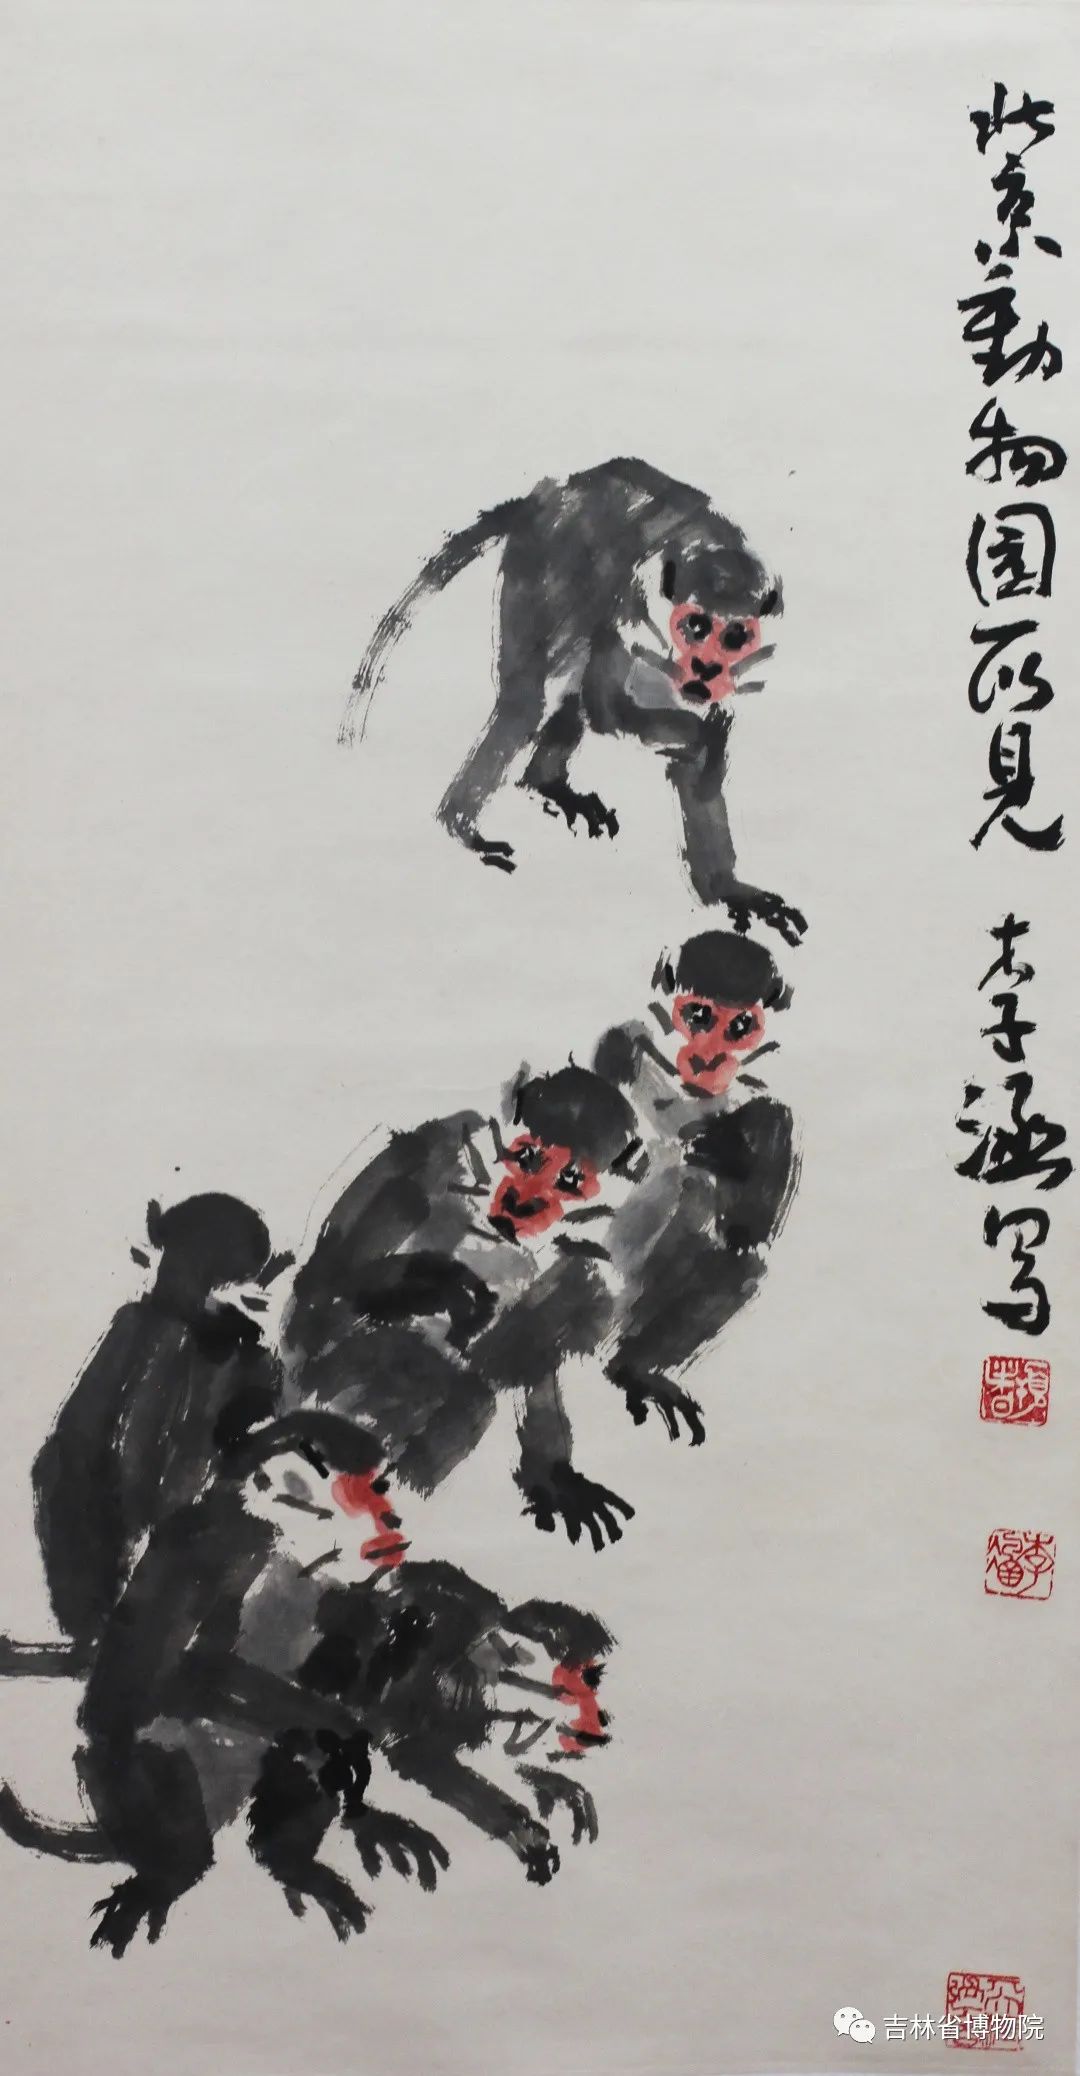 北京動物園所見 李子涵寫
李
吉林省博物院